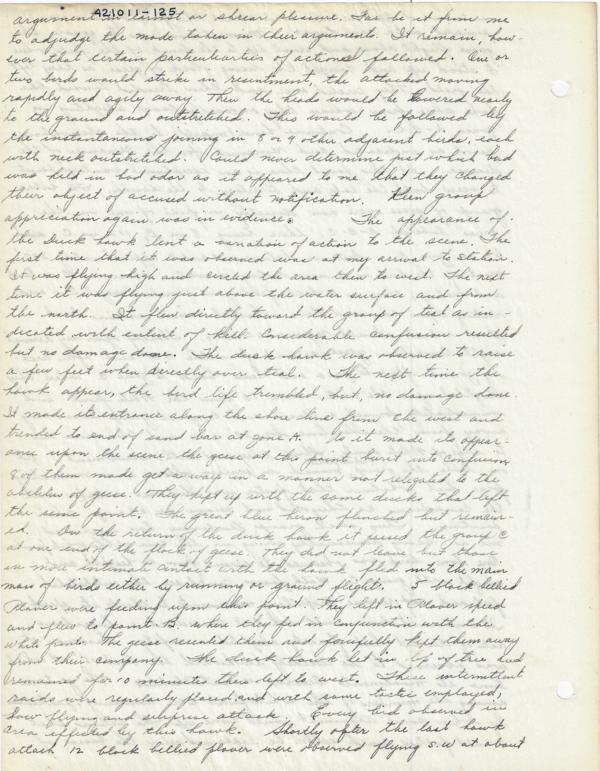 421011-125
argument in earnest or shrear pleasure. Far be it from me
to adjudge the mode taken in their arguments. It remain, how-
ever that certain particuliarties of actions followed. One or
two birds would strike in resentment, the attacked moving
rapidly and agily away. Then the heads would be lowered nearly
to the ground and outstretched. This would be followed by
the instantaneous joining in 8 or 9 other adjacent birds, each
with neck outstretched. Could never determine just which bird
was held in bad odor as it appeared to me that they changed
their object of accused without notification. Keen group
appriciation again was in evidence. The appearance of
the Duck hawk lent a variation of action to the scene. The
first time that it was observed was at my arrival to station.
It was flying high and circled the area then to west. The next
time it was flying just above the water surface and from
the north. It flew directly toward the group of teal as in-
dicated with entent of kill. Considerable confusion resulted
but no damage done. The duck hawk was observed to raise
a few feet when directly over teal. The next time the
hawk appear, the bird life trembled, but, no damage done.
It made its entrance along the shore line from the west and
trended to end of sand bar at zone A. As it made its appear-
ance upon the scene the geese at this point burst into confusion,
8 of them made get a way in a manner not relegated to the
abilities of geese. They kept up with the some ducks that left
the same point. The great blue heron flinched but remain-
ed. On the return of the duck hawk it the group C
at one end of the flock of geese. They did not leave but those
in more intimate contact with the hawk fled into the main
mass of birds either by running or ground flight. 5 black bellied
Plover were feeding upon this point. They left in Plover speed
and flew to point B. where they fed in conjunction with the
white fronts. The geese resented them and forcefully kept them away
from their company. The duck hawk let in top of tree and
remained for 10 minutes then left to west. These intermittent
raids were regularly placed and with same tactic employed,
low flying and surprise attack. Every bird observed in
area effected by this hawk. Shortly after the last hawk
attack 12 black bellied plover were observed flying S.W at about